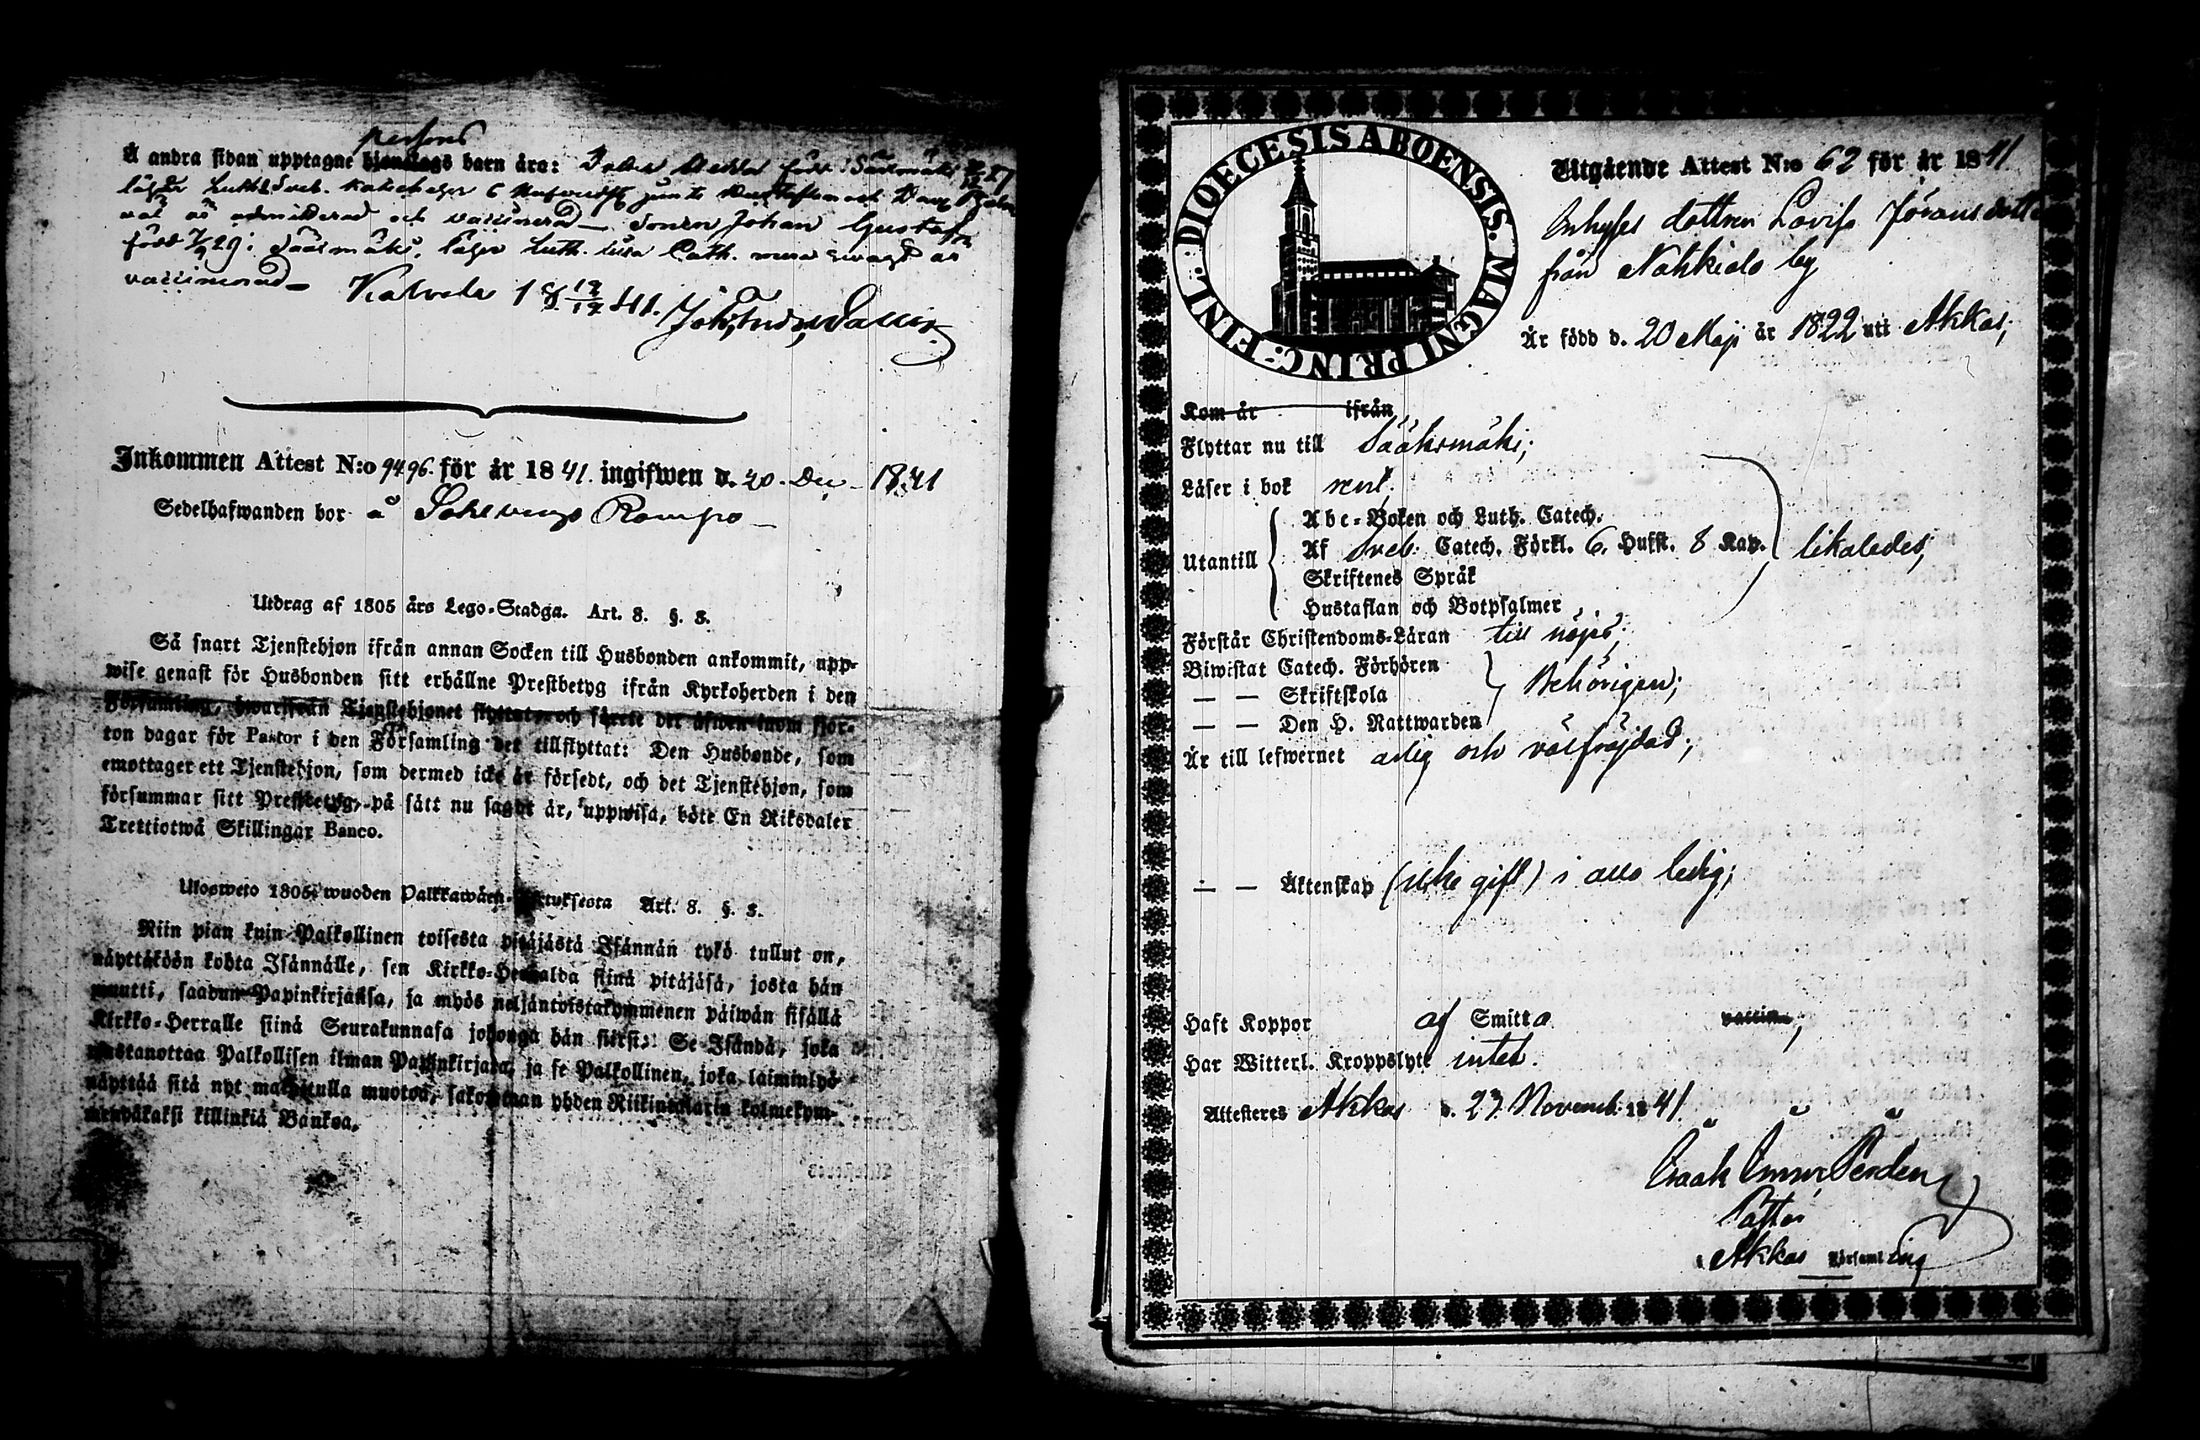 persons
Å andra sidan upptagne hjonelags barn äro: född i Sääxmäki
läser Luth. Sveb. 6
väl är admitterad och vaccinerad – Sonen Johan Gustaf
född 29 i Sääxmäki, läser Luth. Cath. är
vaccinerad – Kalvola 12/12 41.
Inkommen Attest N:o 9496. för år 1841. ingifwen d. 20. Dec – 1841
Sedelhafwanden bor å Rampo –
Utdrag af 1805 års Lego-Stadga. Art. 8. §. 3.
Så snart Tjenstehjon ifrån annan Socken till Husbonden ankommit, upp-
wise genast för Husbonden sitt erhållne Prestbetyg ifrån Kyrkoherden i den
Församling, hwarifrån Tjenstehjonet flyttat och förete det äfwen inom fjor-
ton dagar för Pastor i den Församling det tillflyttat: Den Husbonde, som
emottager ett Tjenstehjon, som dermed icke är försedt, och det Tjenstehjon, som
försummar sitt Prestbetyg, på sätt nu sagdt är, uppwisa, böte En Riksdaler
Trettiotwå Skillingar Banco.
Ulosweto 1805: wuoden Palkkawäen-Asetuksesta Art. 8. §. 3.
Niin pian kuin Palkollinen toisesta pitäjästä Isännän tykö tullut on,
näyttäköön kohta Isännälle, sen Kirkko-Herralda siinä pitäjäsä, josta hän
muutti, saadun Papinkirjansa, ja myös neljäntoistakymmenen päiwän sisällä
Kirkko-Herralle siinä Seurakunnasa johonga hän siirsi: Se Isändä, joka
wastanottaa Palkollisen ilman Papinkirjata, ja se Palkollinen, joka laiminlyö
näyttää sitä nyt mainitulla muotoa, sakotetaan yhden Riikintalarin kolmekym-
mendäkaksi killinkiä Bankoa.
DIOECESIS ABOENSIS. MAGNI PRINC: FINL:
Utgående Attest N:o 62 för år 1841
Inhyses dottren Lovisa Jöransdotter
från Nahkiala by
Är född d. 20 Maji år 1822 uti Akkas;
Kom år ifrån
Flyttar nu till Sääksmäki;
Läser i bok rent
Utantill
Abc-Boken och Luth. Catech.
Af Sveb. Catech. Förkl. 6. Hufst. 8 Kap.
Skriftenes Språk
Hustaflan och Botpsalmer
likaledes;
Förstår Christendoms-Läran till nöjes;
Biwistat Catech. Förhören
— — Skriftskola
— — Den H. Nattwarden
Behörigen;
Är till lefwernet ärlig och välfräjdad;
— — Äktenskap (icke gift) i allo ledig;
Haft Koppor af Smitta vaccin;
Har Witterl. Kroppslyte intet.
Attesteras Akkas d. 23 Novemb. 1841.
Pastor
Akkas Församling